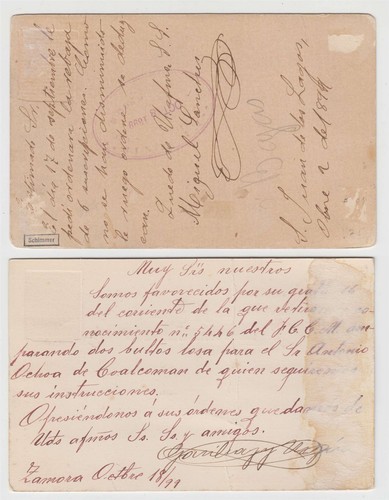 Estimado Sr.
El dia 17 de septiembre le
pedi ordenara
de 6 suscripciones. Como
no se han disminuido
le ruego ordene se
Quedo de Ud afmo. S. S.
Miguel Sanchez
S. Juan de los Lagos,
Obre 2 del 1899
Schimmer
Muy Srs nuestros
Somos favorecidos por su
del corriente de la que retiramos
nocimiento nº. 5446 del F. C. C. M am-
parando dos bultos losa para el Sr Antonio
Ochoa de Coalcoman de quien
sus instrucciones.
Ofresiéndonos á sus órdenes quedamos de
Uds afmos Ss. Ss. y amigos.
Zamora Octbre 18/99